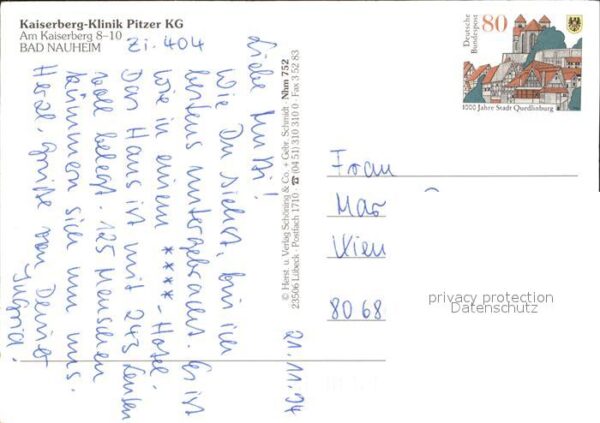 Kaiserberg-Klinik Pitzer KG
Am Kaiserberg 8–10
BAD NAUHEIM
Zi. 404
21.11.94
Liebe Mutti!
Wie Du siehst, bin ich
bestens untergebracht. Es ist
wie in einem ****-Hotel.
Das Haus ist mit 243 Leuten
voll belegt. 125 Menschen
kümmern sich um uns.
Herzl. Grüße von Deiner
© Herst. u. Verlag Schöning & Co. + Gebr. Schmidt · Nhm 752
23506 Lübeck · Postfach 1710 · ☎ (04 51) 310 310 0 · Fax 3 52 83
Deutsche
Bundespost
80
1000 Jahre Stadt Quedlinburg
Frau
8068
privacy protection
Datenschutz